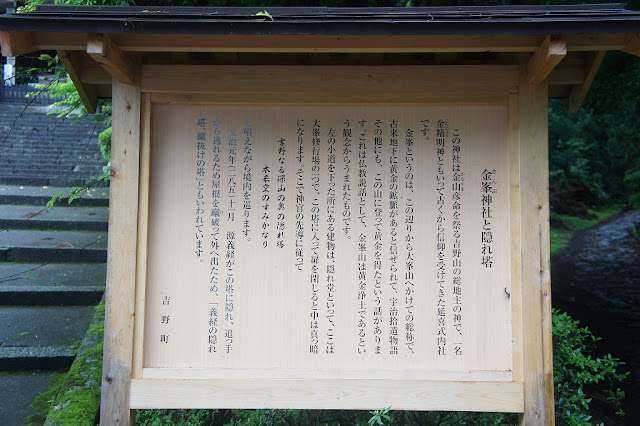 金峯神社と隠れ塔
この神社は金山彦命を祭る吉野山の総地主の神で、一名
金精明神ともいって古くから信仰を受けてきた延喜式内社
です。
金峯というのは、この辺りから大峯山へかけての総称で、
古来地下に黄金の鉱脈があると信ぜられて、宇治拾遺物語
その他にも、この山に登って黄金を得たという話がありま
す。これは仏教説話として、金峯山は黄金浄土であるとい
う観念からうまれたものです。
左の小道を下った所にある建物は、隠れ堂といって、ここは
大峯修行場の一つで、この塔に入って扉を閉じると中は真っ暗
になります。そこで神官の先導に従って
吉野なる深山の奥の隠れ塔
本来空のすみかなり
を唱えながら境内を巡ります。
文治元年(一八五)十一月 源義経がこの塔に隠れ、追っ手
から逃れるため屋根を蹴破って外へ出たため、「義経の隠れ
塔、蹴抜けの塔」ともいわれています。
吉野町